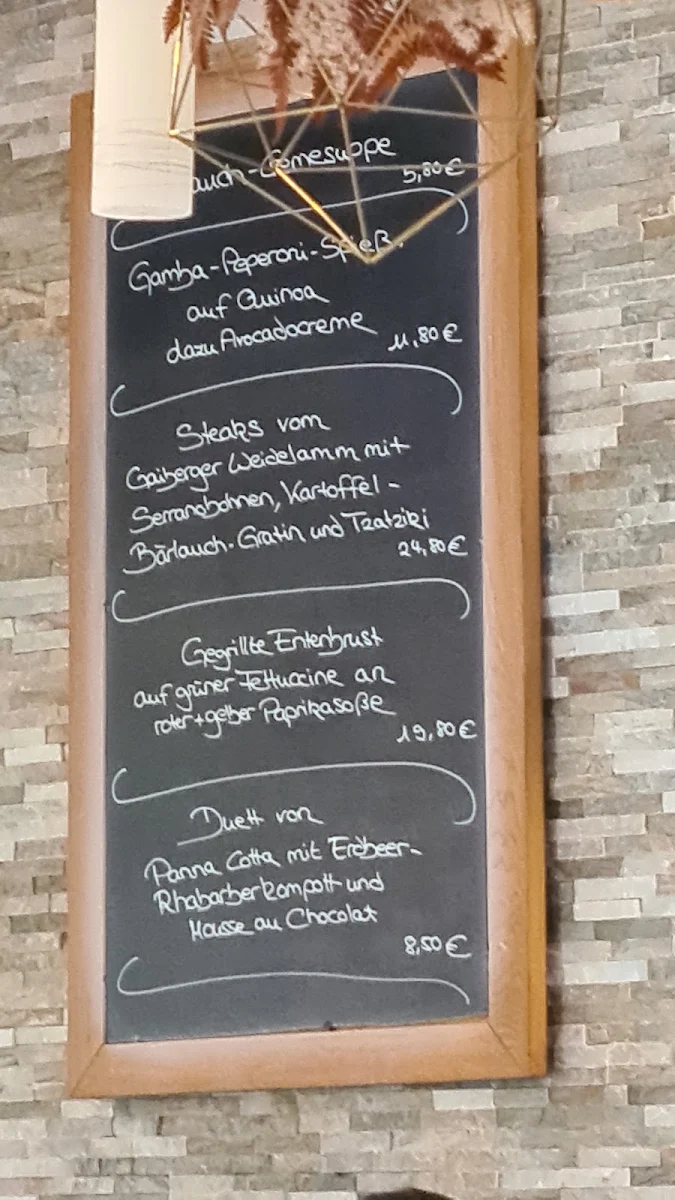 auch-Cremesuppe
5,80€
Gamba-Peperoni-Spieß
auf Quinoa
dazu Avocadocreme
11,80€
Steaks vom
Gaiberger Weidelamm mit
Serranobohnen, Kartoffel-
Bärlauch-Gratin und Tzatziki
24,80€
Gegrillte Entenbrust
auf grüner Fettuccine an
roter+gelber Paprikasoße
19,80€
Duett von
Panna Cotta mit Erdbeer-
Rhabarberkompott und
Mousse au Chocolat
8,50€